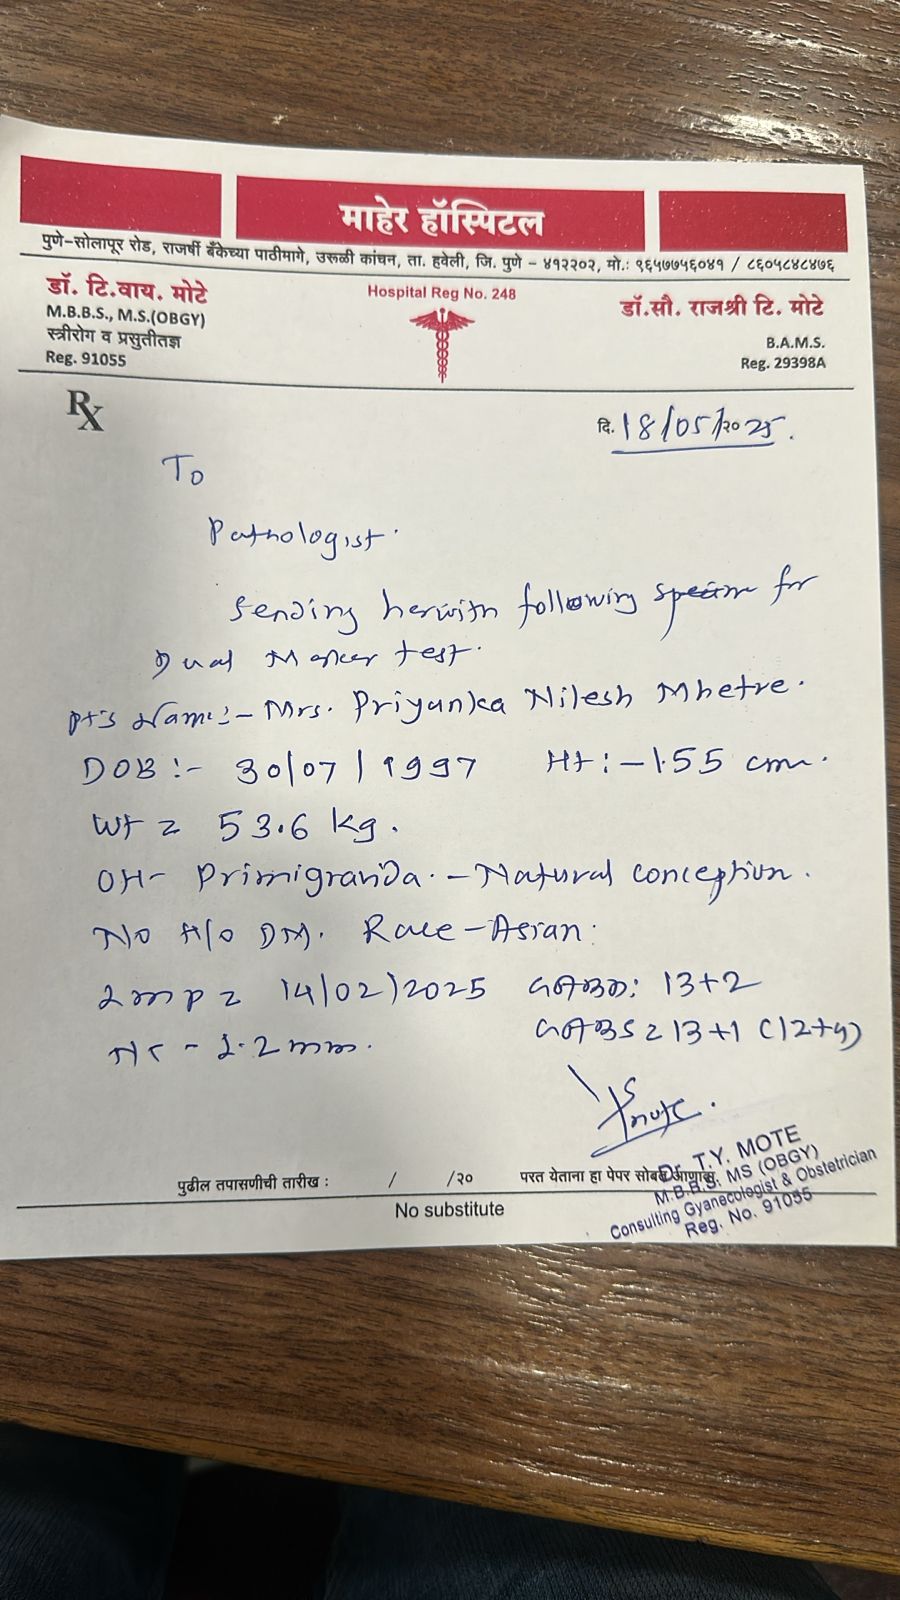 माहेर हॉस्पिटल
पुणे-सोलापूर रोड, राजर्षी बँकेच्या पाठीमागे, उरूळी कांचन, ता. हवेली, जि. पुणे - ४१२२०२, मो.: ९६५७७५६०४१ / ८६०५८४८४७६
डॉ. टि.वाय. मोटे
M.B.B.S., M.S.(OBGY)
स्त्रीरोग व प्रसुतीतज्ञ
Reg. 91055
Hospital Reg No. 248
डॉ.सौ. राजश्री टि. मोटे
B.A.M.S.
Reg. 29398A
Rx
दि. 18/05/२०25.
To
Pathologist.
Sending herwith following for
Dual Marker test.
Pt's Name:- Mrs. Priyanka Nilesh Mhetre.
DOB :- 30/07/1997 Ht :- 155 cm.
Wt = 53.6 kg.
OH- Primigravida. - Natural conception.
No H/o DM. Race - Asian.
Lmp = 14/02/2025 13+2
= 13+1 (12+4)
NT - 1.2 mm.
Dr. T.Y. MOTE
M.B.B.S, MS (OBGY)
Consulting Gyanecologist & Obstetrician
Reg. No. 91055
पुढील तपासणीची तारीख : / /२० परत येताना हा पेपर सोबत आणावा.
No substitute